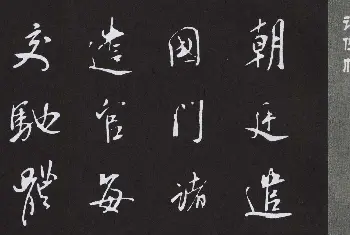 朝廷造
國門諸
造官每
交馳體